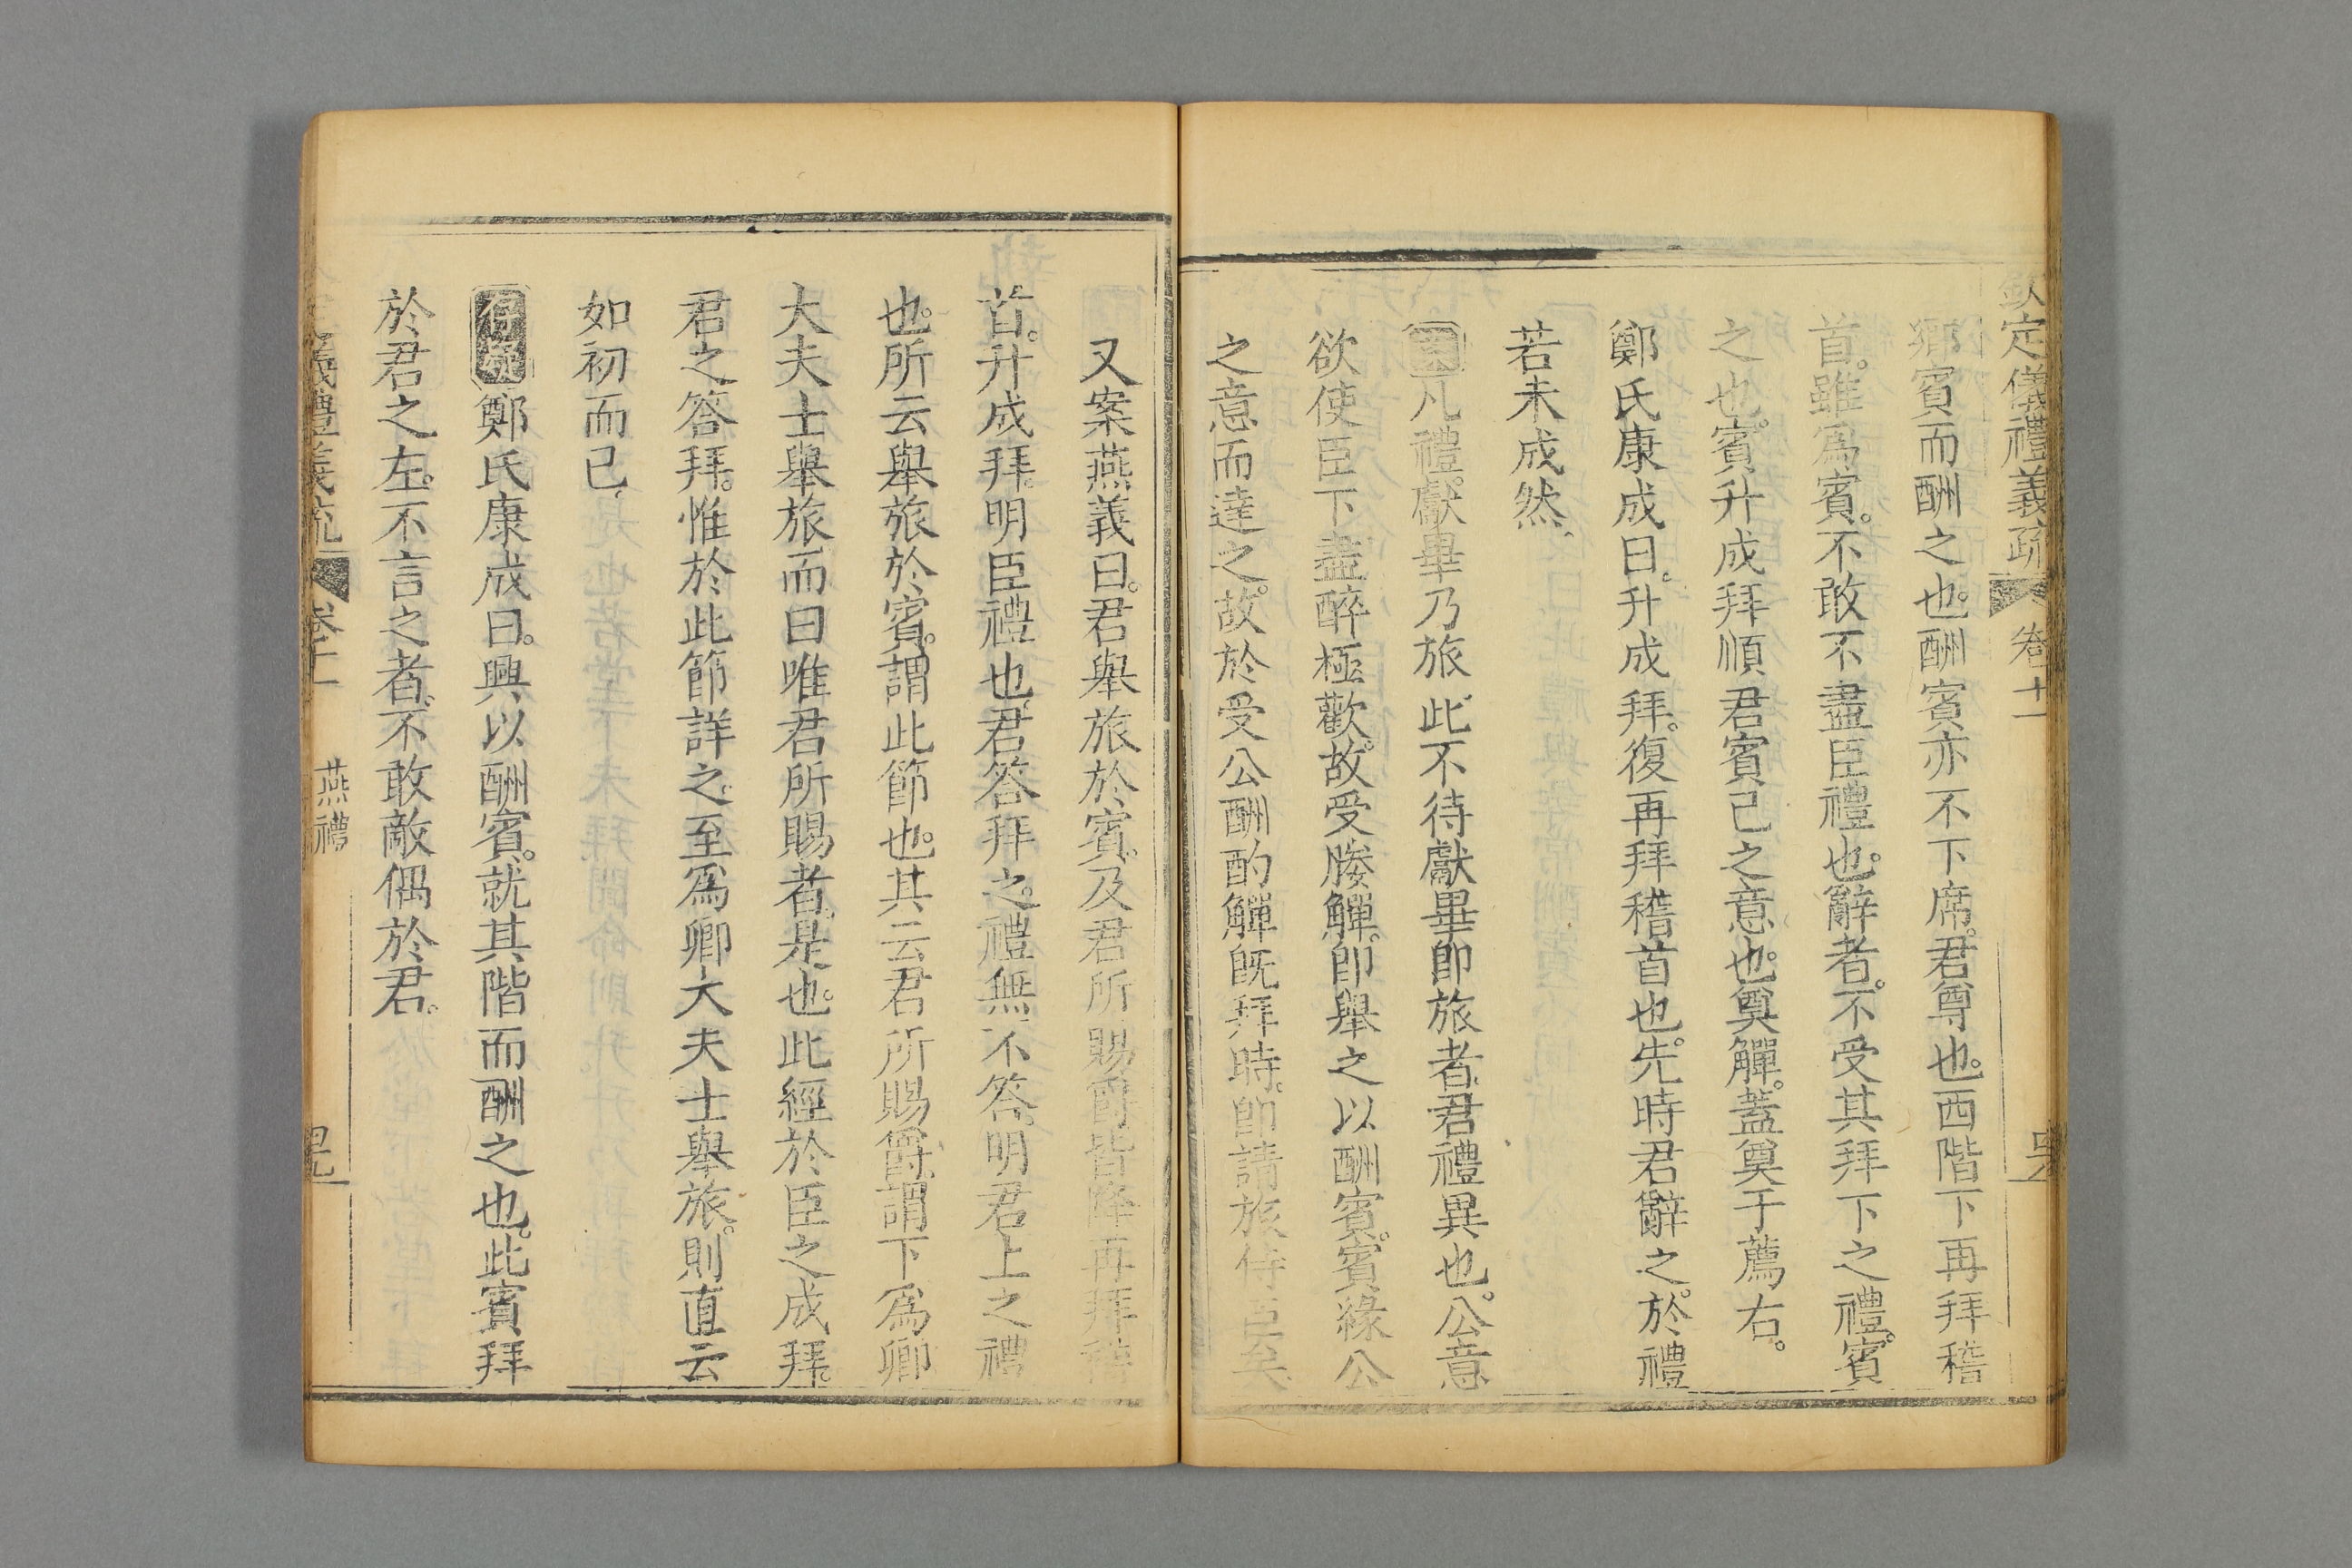 欽定儀禮義疏 卷十一
鄉賓而酬之也。酬賓亦不下席。君尊也。西階下再拜稽
首。雖爲賓。不敢不盡臣禮也。辭者。不受其拜下之禮。賓
之也。賓升成拜順君賓己之意也。奠觶。蓋奠于薦右。
鄭氏康成曰。升成拜。復再拜稽首也。先時君辭之。於禮
若未成然。
案凡禮。獻畢乃旅此不待獻畢卽旅者。君禮異也。公意
欲使臣下盡醉極歡。故受媵觶。卽舉之以酬賓。賓緣公
之意而達之。故於受公酬酌觶旣拜時。卽請旅侍臣矣。
又案燕義曰。君舉旅於賓。及君所賜爵皆降再拜稽
首。升成拜。明臣禮也。君答拜之。禮無不答。明君上之禮
也。所云舉旅於賓。謂此節也。其云君所賜爵。謂下爲卿
大夫士舉旅而曰唯君所賜者。是也。此經於臣之成拜。
君之答拜。惟於此節詳之。至爲卿大夫士舉旅。則直云
如初而已。
存疑鄭氏康成曰。興以酬賓。就其階而酬之也。此賓拜
於君之左。不言之者。不敢敵偶於君。
儀禮義疏 卷十一 燕禮